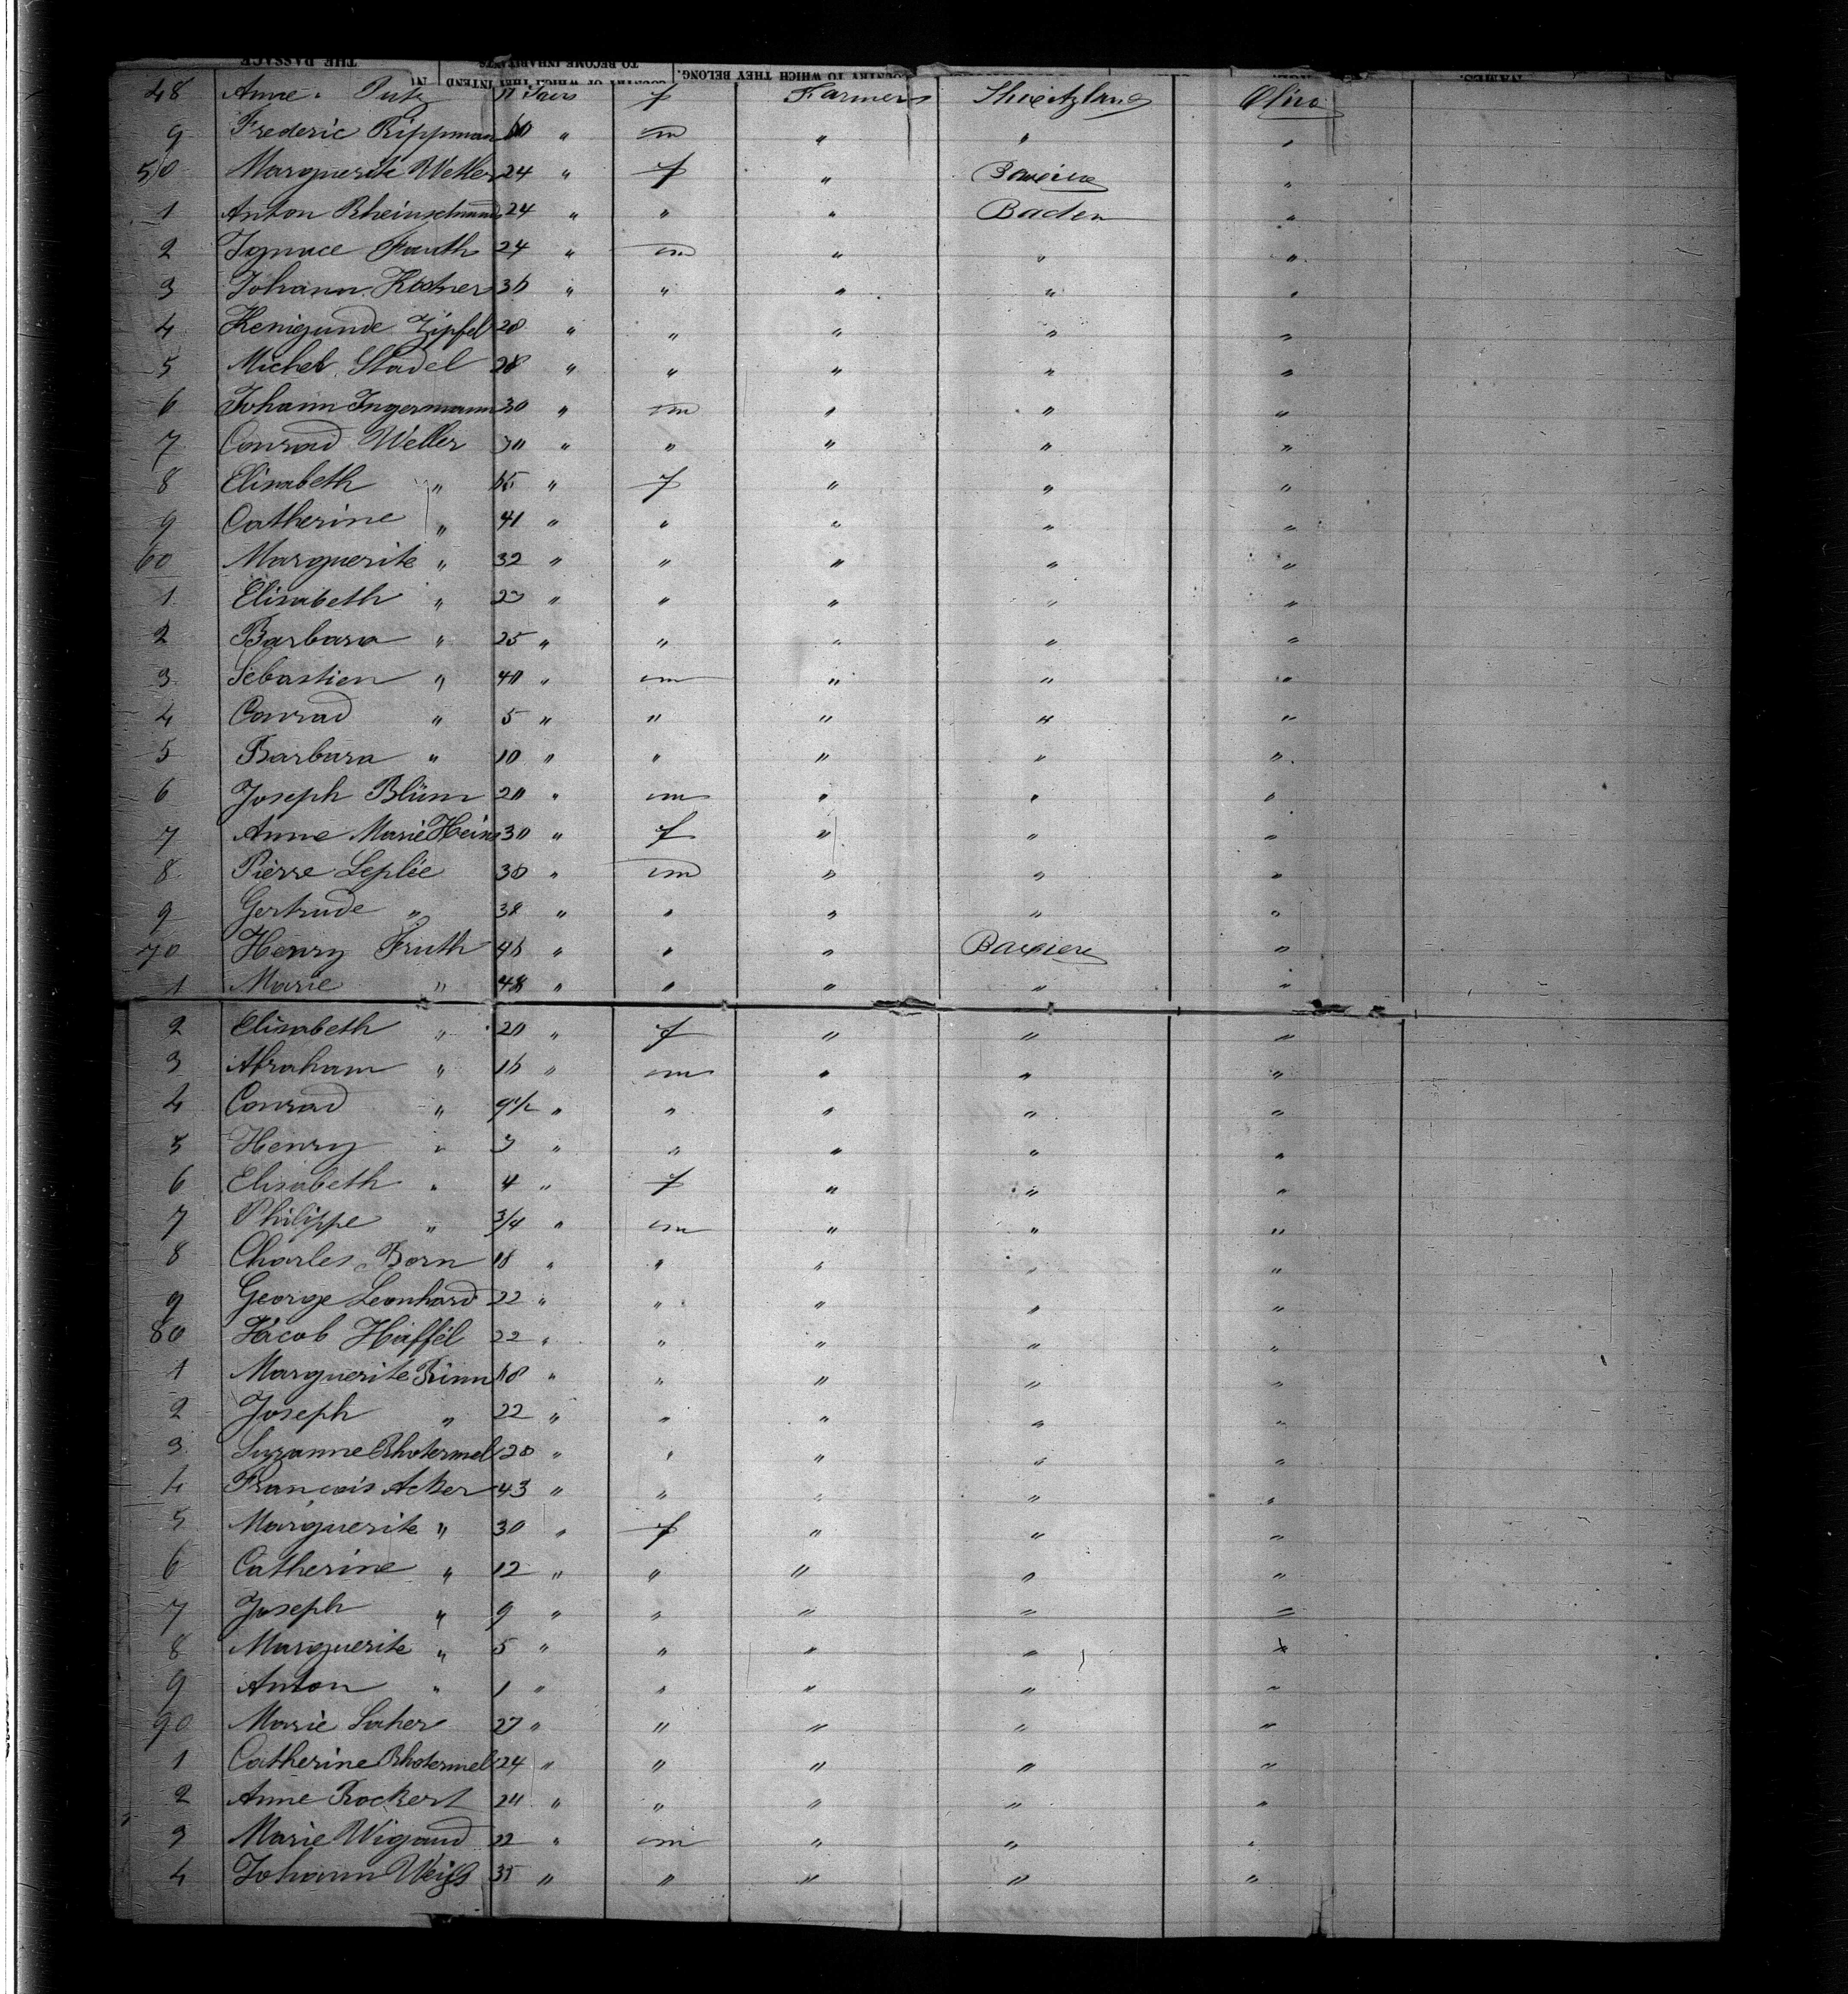 THE PASSAGE
COUNTRY OF WHICH THEY INTEND TO BECOME INHABITANTS
COUNTRY TO WHICH THEY BELONG.
NAMES.
48 Anne f Farmers
9 Frederic Rippmann 60 " m " " "
50 Marguerite 24 " f " "
1 Anton 24 " " " Baden "
2 Ignace Fauth 24 " m " " "
3 Johann 36 " " " " "
4 Kenigunde Zipfel 28 " " " " "
5 Michel Stadel 28 " " " " "
6 Johann Ingermann 30 " m " " "
7 Conrad Weller 30 " " " " "
8 Elisabeth " 65 " f " " "
9 Catherine " 41 " " " " "
60 Marguerite " 32 " " " " "
1 Elisabeth " 23 " " " " "
2 Barbara " 25 " " " " "
3 Sebastien " 40 " m " " "
4 Conrad " 5 " " " " "
5 Barbara " 10 " " " " "
6 Joseph Blüm 20 " m " " "
7 Anne Marie Hein 30 " f " " "
8 Pierre Leplée 30 " m " " "
9 Gertrude " 38 " " " " "
70 Henry Fruth 46 " " " "
1 Marie " 48 " " " " "
2 Elisabeth " 20 " f " " "
3 Abraham " 16 " m " " "
4 Conrad " 9 1/2 " " " " "
5 Henry " 3 " " " " "
6 Elisabeth " 4 " f " " "
7 Philippe " 3/4 " m " " "
8 Charles Born 18 " " " " "
9 George Leonhard 22 " " " " "
80 Jacob Häffel 22 " " " " "
1 Marguerite " " " " "
2 Joseph " 22 " " " " "
3 Suzanne Rhotermel 20 " " " " "
4 François Acker 43 " " " " "
5 Marguerite " 30 " f " " "
6 Catherine " 12 " " " " "
7 Joseph " 9 " " " " "
8 Marguerite " 5 " " " " "
9 Anton " 1 " " " " "
90 Marie 27 " " " " "
1 Catherine Rhotermel 24 " " " " "
2 Anne Rockert 24 " " " " "
3 Marie Wigand 22 " m " " "
4 Johann Weiß 35 " " " " "